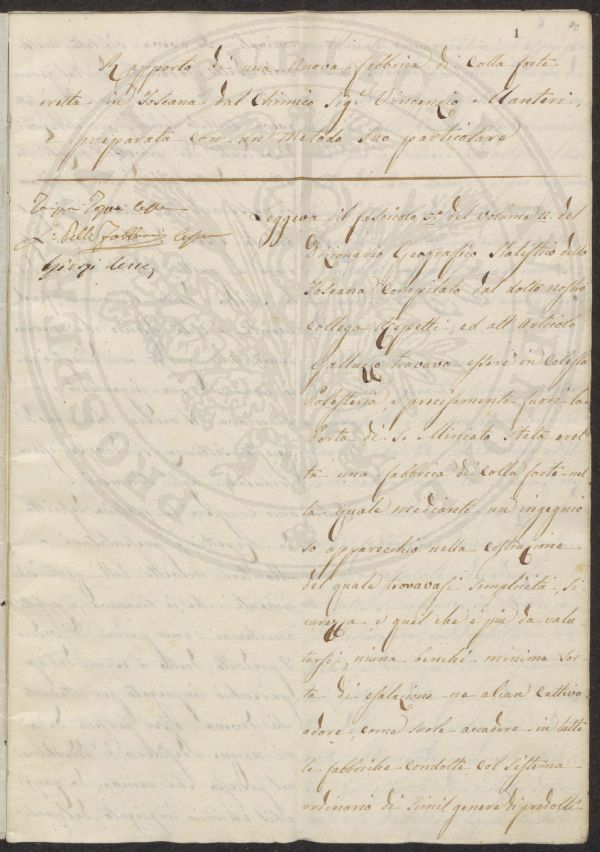 1
Rapporto di una Nuova fabbrica di Colla forte
eretta in Toscana dal Chimico Sig. Vincenzio Manteri,
e preparata con un Metodo Suo particolare
Leggeva il fascicolo 5º del volume II. del
Dizionario Geografico Statistico della
Toscana Compilato dal dotto nostro
collega Repetti, ed all' Articolo
Galluzzo trovava essere in cotesta
Potesteria, e precisamente fuori la
Porta di S. Miniato Stata eret
ta una fabbrica di Colla forte nel
la quale mediante un ingegnio
so apparecchio nella costruzione
del quale trovavasi semplicità, si
curezza e quel che è più da valu
tarsi, niuna benchè minima sor
ta di esalazione ne alcun cattivo
odore, come suole accadere in tutte
le fabbriche condotte col sistema
ordinario di simil genere di prodotti
PROSPERITÀ